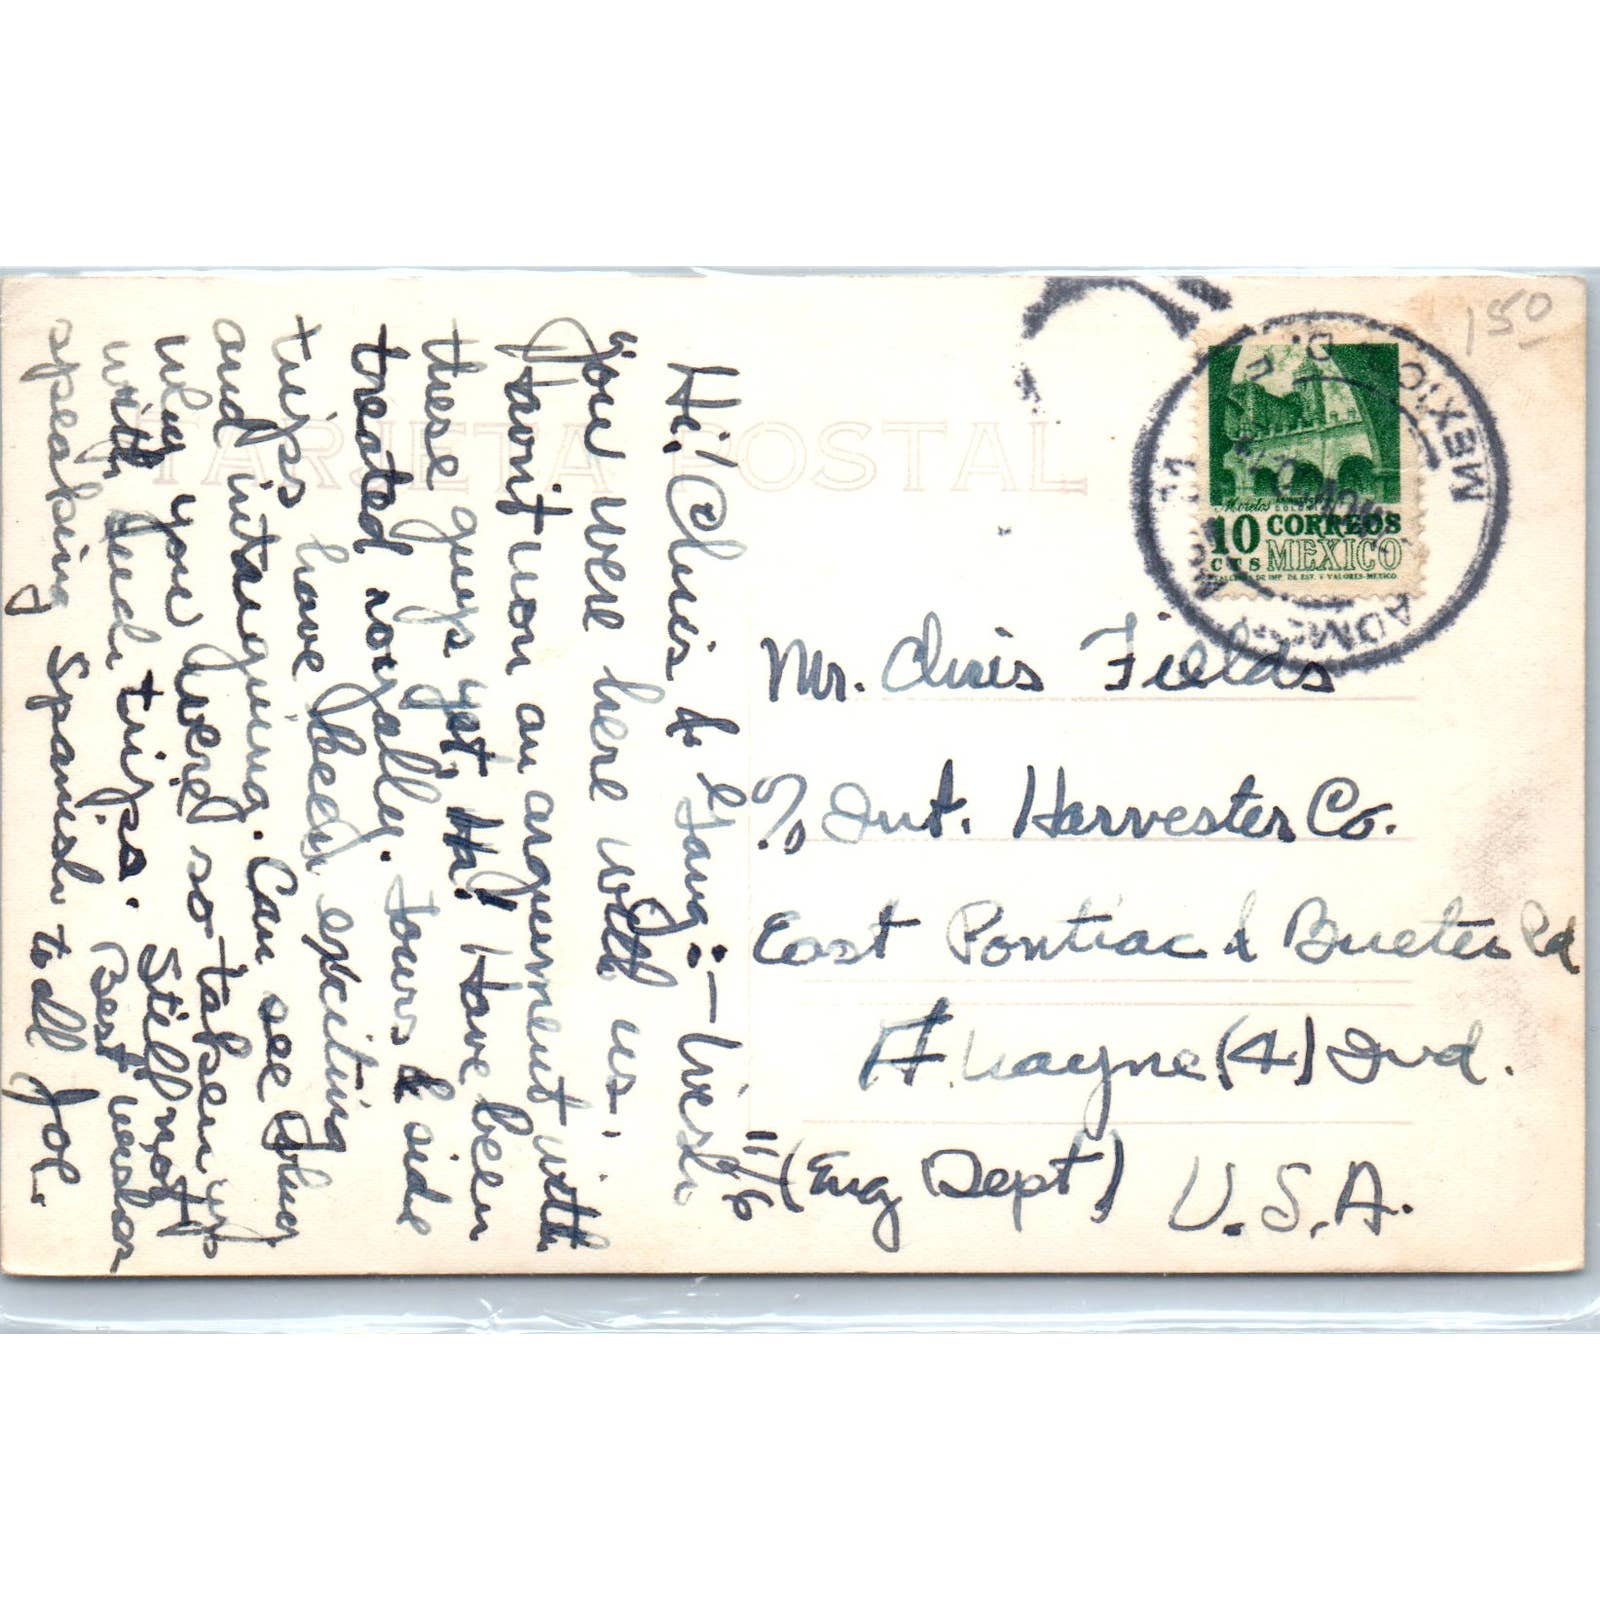 11/6
Hi! Chris & Gang:— Wish
you were here with us.
Havnt won an arguement with
these guys yet Ha! Have been
treated royally. Tours & side
trips have been exciting
and intriguing. Can see Johny
why you were so taken up
with such trips. Still not
speaking Spanish to all
Best wishes
Joe.
TARJETA POSTAL
150
MEXICO D. F.
Morelos
COLONIAL
10 CORREOS
CTS MEXICO
TALLERES DE IMP. DE EST. Y VALORES-MEXICO
Mr. Chris Fields
℅ Int. Harvester Co.
East Pontiac & Bueter Rd
Ft. Wayne (4) Ind.
(Eng Dept) U.S.A.